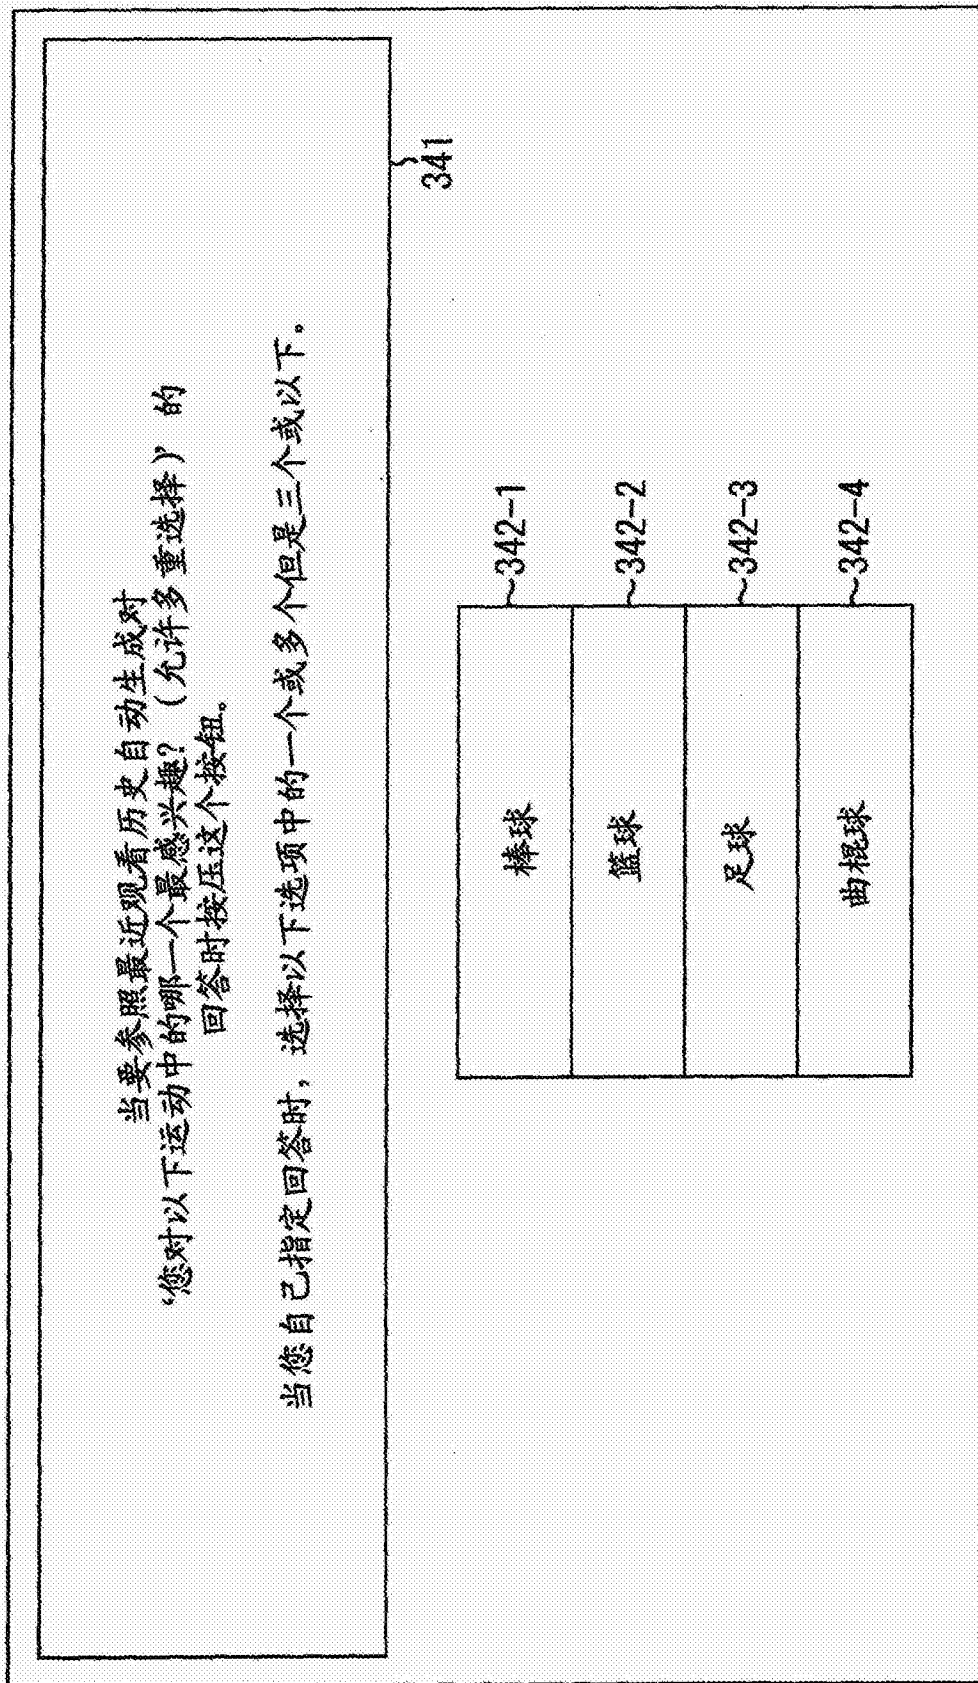 当要参照最近观看历史自动生成对
‘您对以下运动中的哪一个最感兴趣？（允许多重选择)’的
回答时按压这个按钮。
当您自己指定回答时，选择以下选项中的一个或多个但是三个或以下。
341
棒球
342-1
篮球
342-2
足球
342-3
曲棍球
342-4